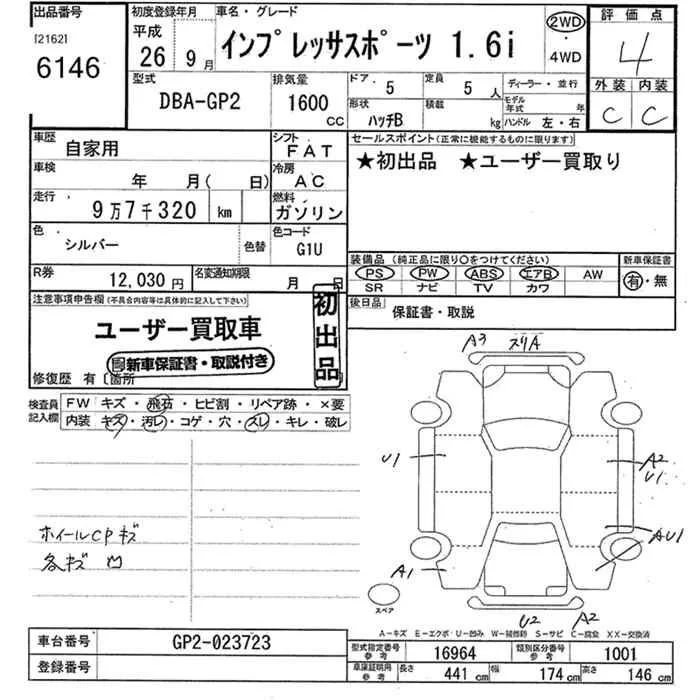 出品番号
[2162]
6146
初度登録年月
平成
26 9月
車名・グレード
インプレッサスポーツ 1.6i
2WD
・
4WD
評価点
4
外装 内装
C C
型式
DBA-GP2
排気量
1600
CC
ドア 5
形状 ハッチB
定員 5人
積載 kg
ディーラー・並行
モデル年式 年
ハンドル 左・右
車歴
自家用
シフト
FAT
車検
年 月( 日)
冷房
AC
走行
9万7千320 km
燃料
ガソリン
色
シルバー
色替
色コード
G1U
R券
12,030円
名変通知期限
月 日
セールスポイント(正常に機能するものに限ります)
★初出品 ★ユーザー買取り
装備品(純正品に限り○をつけてください)
PS PW ABS エアB AW
SR ナビ TV カワ
新車保証書
有・無
後日品
保証書・取説
注意事項申告欄(不具合内容等は具体的に記入して下さい)
ユーザー買取車
新車保証書・取説付き
初出品
修復歴 有〔箇所
検査員記入欄
FW キズ・飛石・ヒビ割・リペア跡・×要
内装 キズ・汚レ・コゲ・穴・スレ・キレ・破レ
ホイールCPキズ
各キズ凹
A3 スリA
U1
A2
U1
AU1
A1
スペア
U2 A2
A-キズ E-エクボ U-凹み W-補修跡 S-サビ C-腐食 XX-交換済
車台番号
GP2-023723
登録番号
型式指定番号
参考
16964
類別区分番号
参考
1001
車庫証明用
参考
長さ 441 cm 幅 174 cm 高さ 146 cm